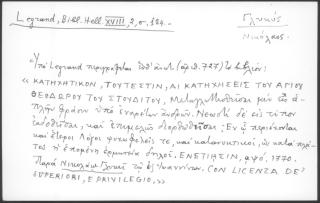 Legrand, Bibl. Hell. XVIII, 2, σ. 124.-
Γλυκύς
Νικόλαος.
"Υπό Legrand περιγράφεται ὑπ' ἀριθ. (ἀρ. 727) τὸ βιβλίον:
« ΚΑΤΗΧΗΤΙΚΟΝ, ΤΟΥΤΕΣΤΙΝ, ΑΙ ΚΑΤΗΧΗΣΕΙΣ ΤΟΥ ΑΓΙΟΥ
ΘΕΟΔΩΡΟΥ ΤΟΥ ΣΤΟΥΔΙΤΟΥ, Μεταγλωττισθεῖσαι μὲν εἰς ἁ-
πλῆν φράσιν ὑπὸ ἐναρέτων ἀνδρῶν. Νεωστὶ δὲ εἰς τύπον
ἐκδοθεῖσαι, καὶ ἐπιμελῶς διορθωθεῖσαι; Ἐν ᾧ περιέχονται
καὶ ἕτεροι Λόγοι ψυχωφελεῖς τε, καὶ κατανυκτικοί, ὡς κατὰ πλά-
τος ἡ ἑπομένη ἑρμηνεία δηλοῖ. ΕΝΕΤΙΗΣΙΝ, αψό, 1770.
Παρὰ Νικολάῳ Γλυκεῖ τῷ ἐξ Ἰωαννίνων. CON LICENZA DE'
SUPERIORI, E PRIVILEGIO, »»